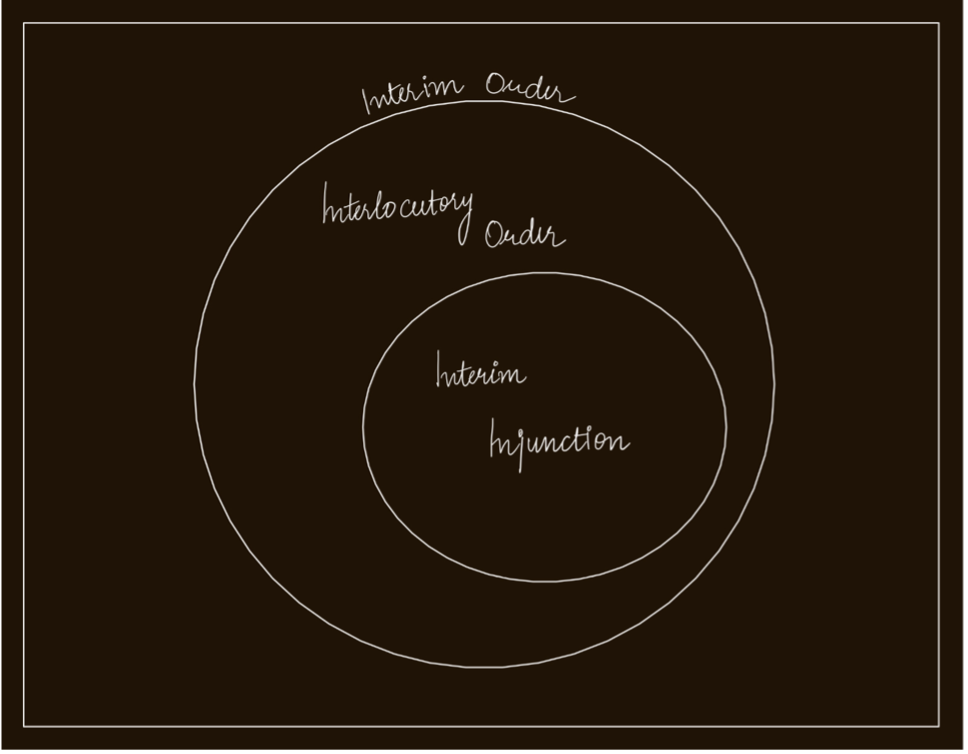 Interim Order
Interlocutory
Order
Interim
Injunction